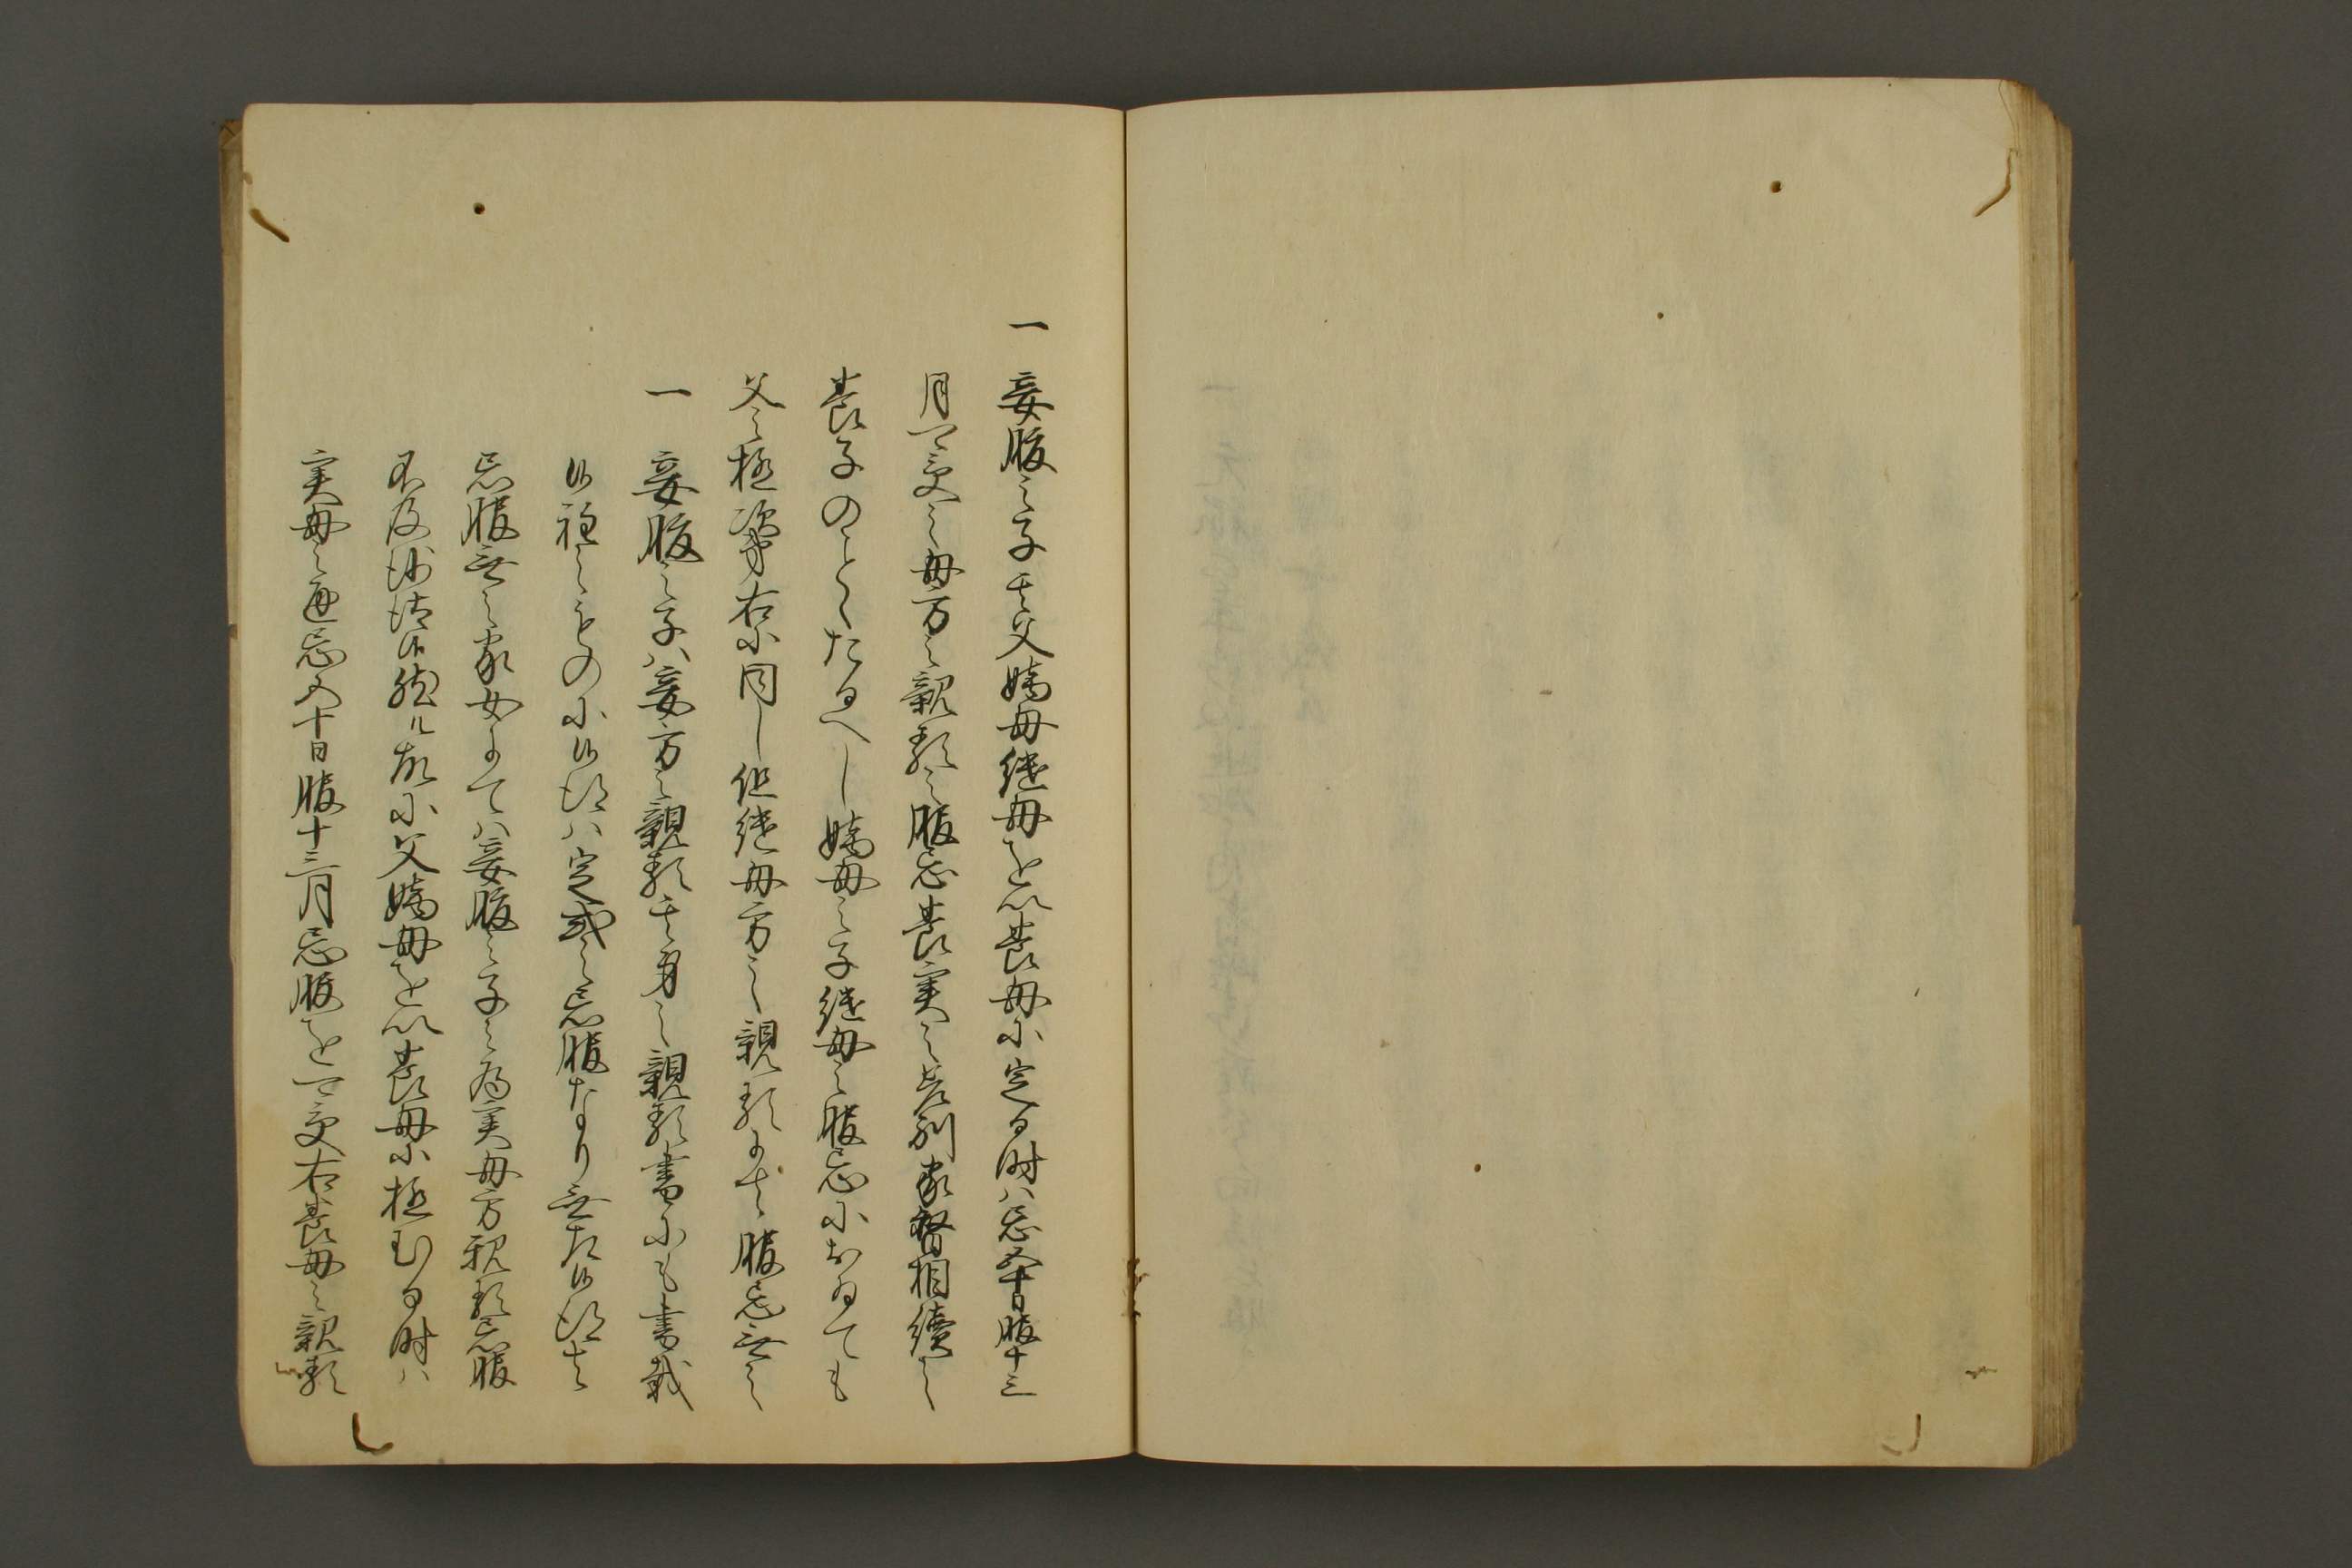 一 妾腹之子其父嫡母継母を以養母ニ定る時ハ忌五十日服十三
月可受之母方之親類之服忌養実之差別家督相続之
養子のことくたるへし嫡母之子継母之服忌におゐても
父之極次第右ニ同し但継母方之親類にハ服忌無之
一 妾腹之子ハ妾方之親類其身之親類書にも書載
候程之ものニ候得ハ定式之忌服なり無左候得は
忌服無之家女にてハ妾腹之子之為実母方親類忌服
不及沙汰候然ル故ニ父嫡母を以養母ニ極むる時ハ
実母之通忌五十日服十三月忌服を可受右養母之親類